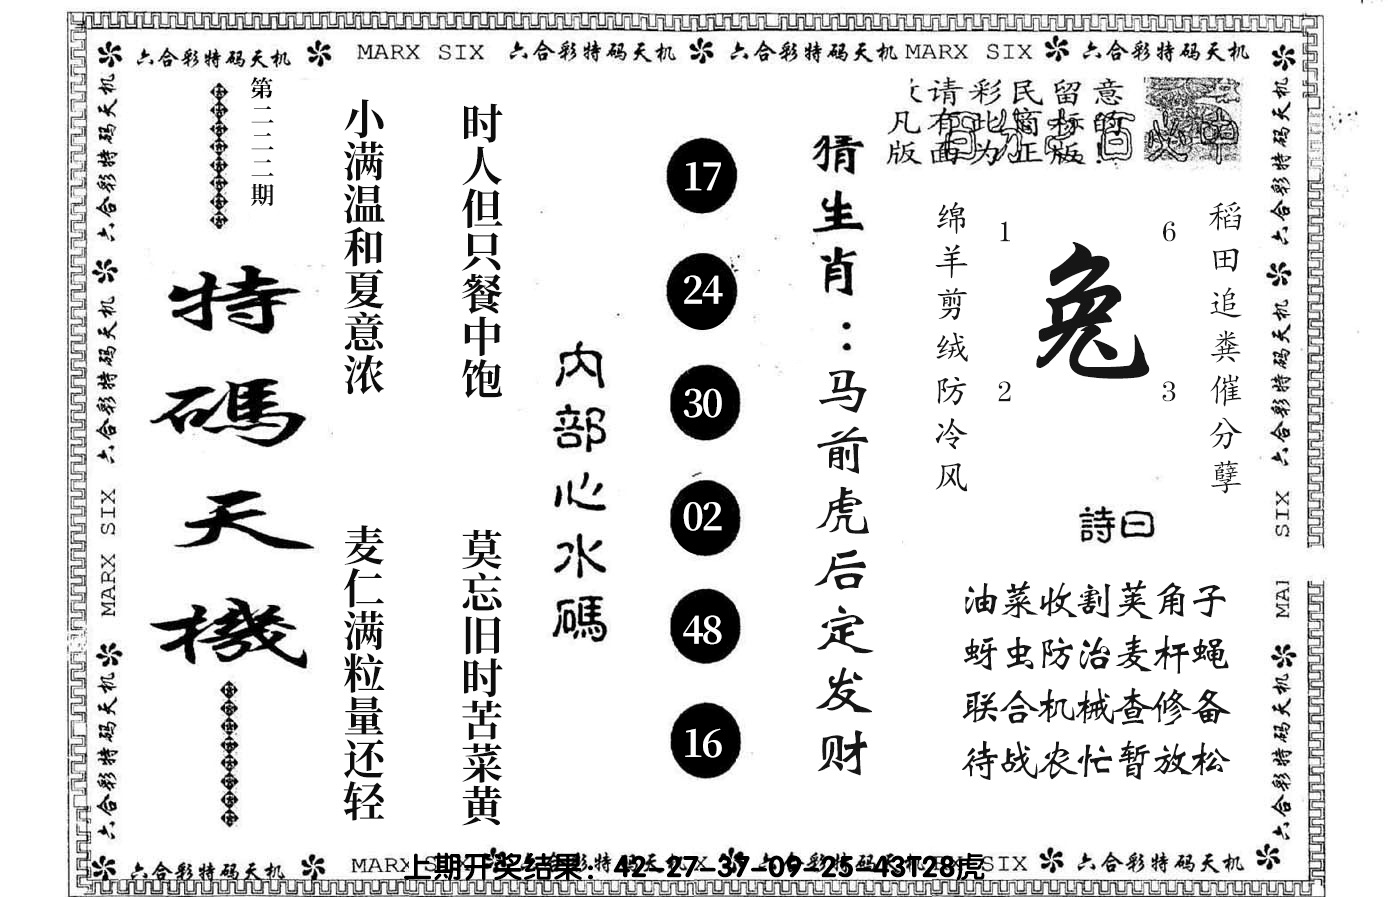 六合彩特码天机 MARX SIX 六合彩特码天机 六合彩特码天机 MARX SIX 六合彩特码天机
第二二二二期
特碼天機
小满温和夏意浓
麦仁满粒量还轻
时人但只餐中饱
莫忘旧时苦菜黄
内部心水碼
17
24
30
02
48
16
猜生肖：马前虎后定发财
请彩民留意
凡有此 的
版面为正版!
绵羊剪绒防冷风
1
6
兔
2
3
稻田追粪催分孽
詩曰
油菜收割荚角子
蚜虫防治麦杆蝇
联合机械查修备
待战农忙暂放松
六合彩特码天机 六合彩特码天机 MARX SIX 六合彩特码天机
六合彩特码天机 六合彩特码天机 SIX MAI 六合彩特码天机
六合彩特码天机 MARX SIX 彩特码天机 SIX 六合彩特码天机
上期开奖结果：42-27-37-09-25-43T28虎